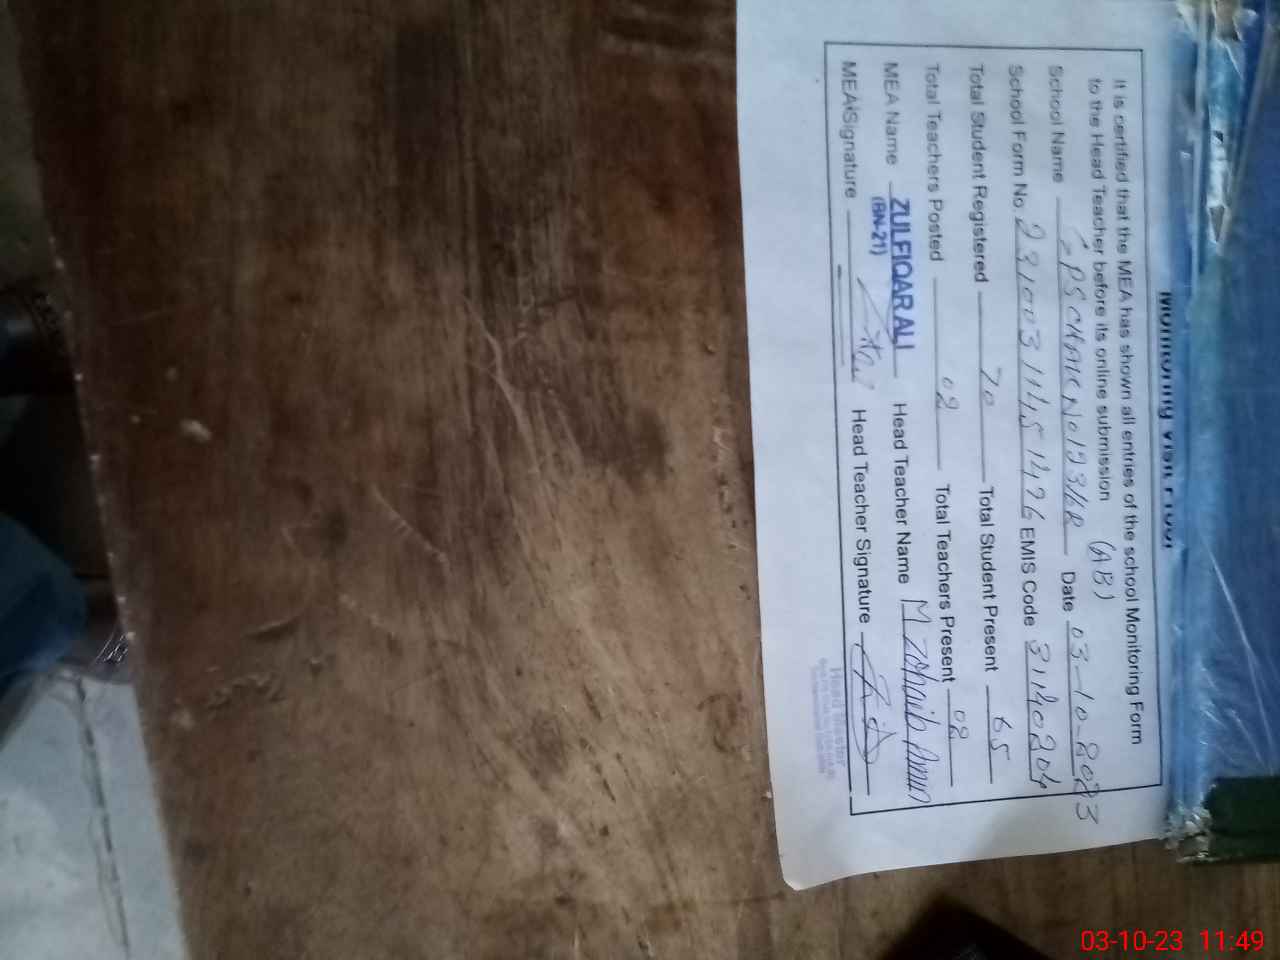 Monitoring Visit Proof
It is certified that the MEA has shown all entries of the school Monitoring Form
to the Head Teacher before its online submission (AB)
School Name GPS CHAK No 123/6R Date 03-10-2023
School Form No. EMIS Code 31140204
Total Student Registered 70 Total Student Present 65
Total Teachers Posted 02 Total Teachers Present 02
MEA Name ZULFIQAR ALI Head Teacher Name M Zohaib Amin
(BN-21)
MEA Signature Head Teacher Signature
Head Master
03-10-23 11:49